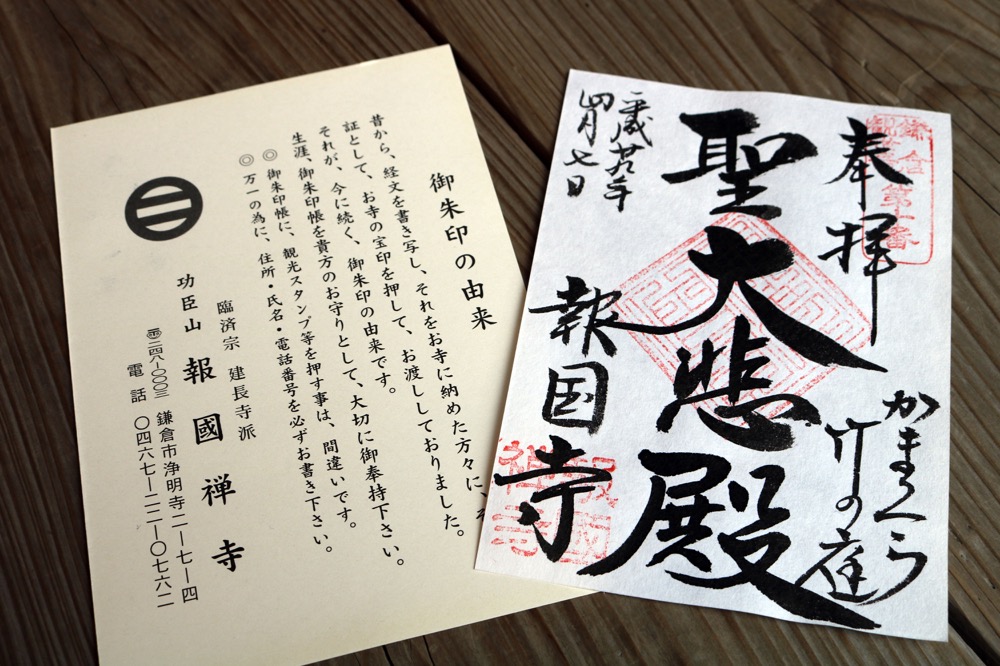 御朱印の由来
昔から、経文を書き写し、それをお寺に納めた方々に、そ
証として、お寺の宝印を押して、お渡ししておりました。
それが、今に続く、御朱印の由来です。
生涯、御朱印帳を貴方のお守りとして、大切に御奉持下さい。
◎ 御朱印帳に、観光スタンプ等を押す事は、間違いです。
◎ 万一の為に、住所・氏名・電話番号を必ずお書き下さい。
臨済宗 建長寺派
功臣山 報國禅寺
〒二四八-〇〇〇三 鎌倉市浄明寺二-七-四
電話 〇四六七-二二-〇七六二
奉拝
鎌倉
第十番
かまくら
竹の庭
聖大悲殿
報国寺
報國
禅寺
平成廿八年
四月七日